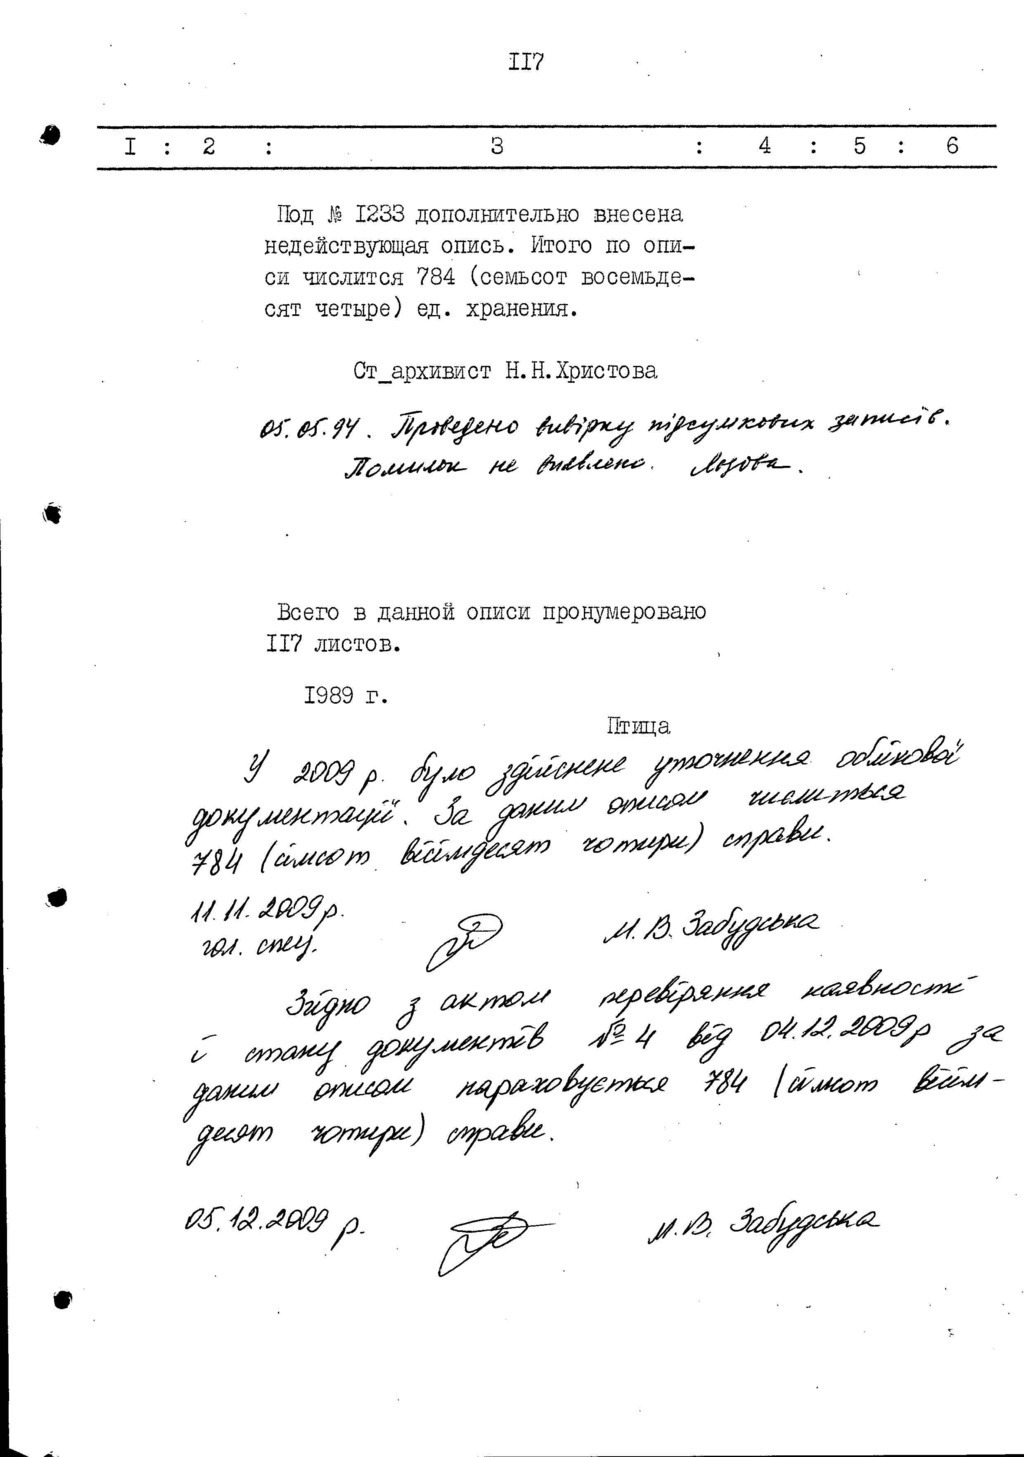 II7
I : 2 : 3 : 4 : 5 : 6
Под № I233 дополнительно внесена
недействующая опись. Итого по опи-
си числится 784 (семьсот восемьде-
сят четыре) ед. хранения.
Ст_архивист Н.Н.Христова
05.05.94. Проведено вивірку підсумкових записів.
Помилок не виявлено. Лозова.
Всего в данной описи пронумеровано
II7 листов.
I989 г.
Птица
У 2009 р. було здійснене уточнення облікової
документації. За даним описом числиться
784 (сімсот вісімдесят чотири) справи.
11.11.2009р.
гол. спец. М.В. Забудська
Згідно з актом перевіряння наявності
і стану документів № 4 від 04.12.2009р за
даним описом нараховується 784 (сімсот вісім-
десят чотири) справи.
05.12.2009 р. М.В. Забудська